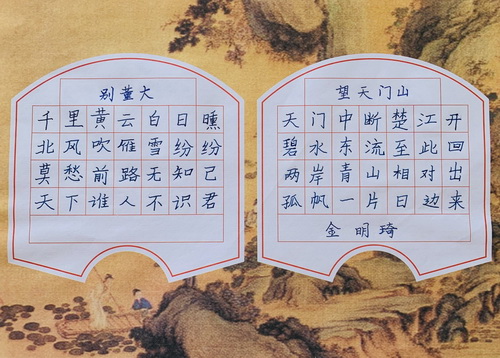 别董大
千里黄云白日曛
北风吹雁雪纷纷
莫愁前路无知己
天下谁人不识君
望天门山
天门中断楚江开
碧水东流至此回
两岸青山相对出
孤帆一片日边来
金明琦